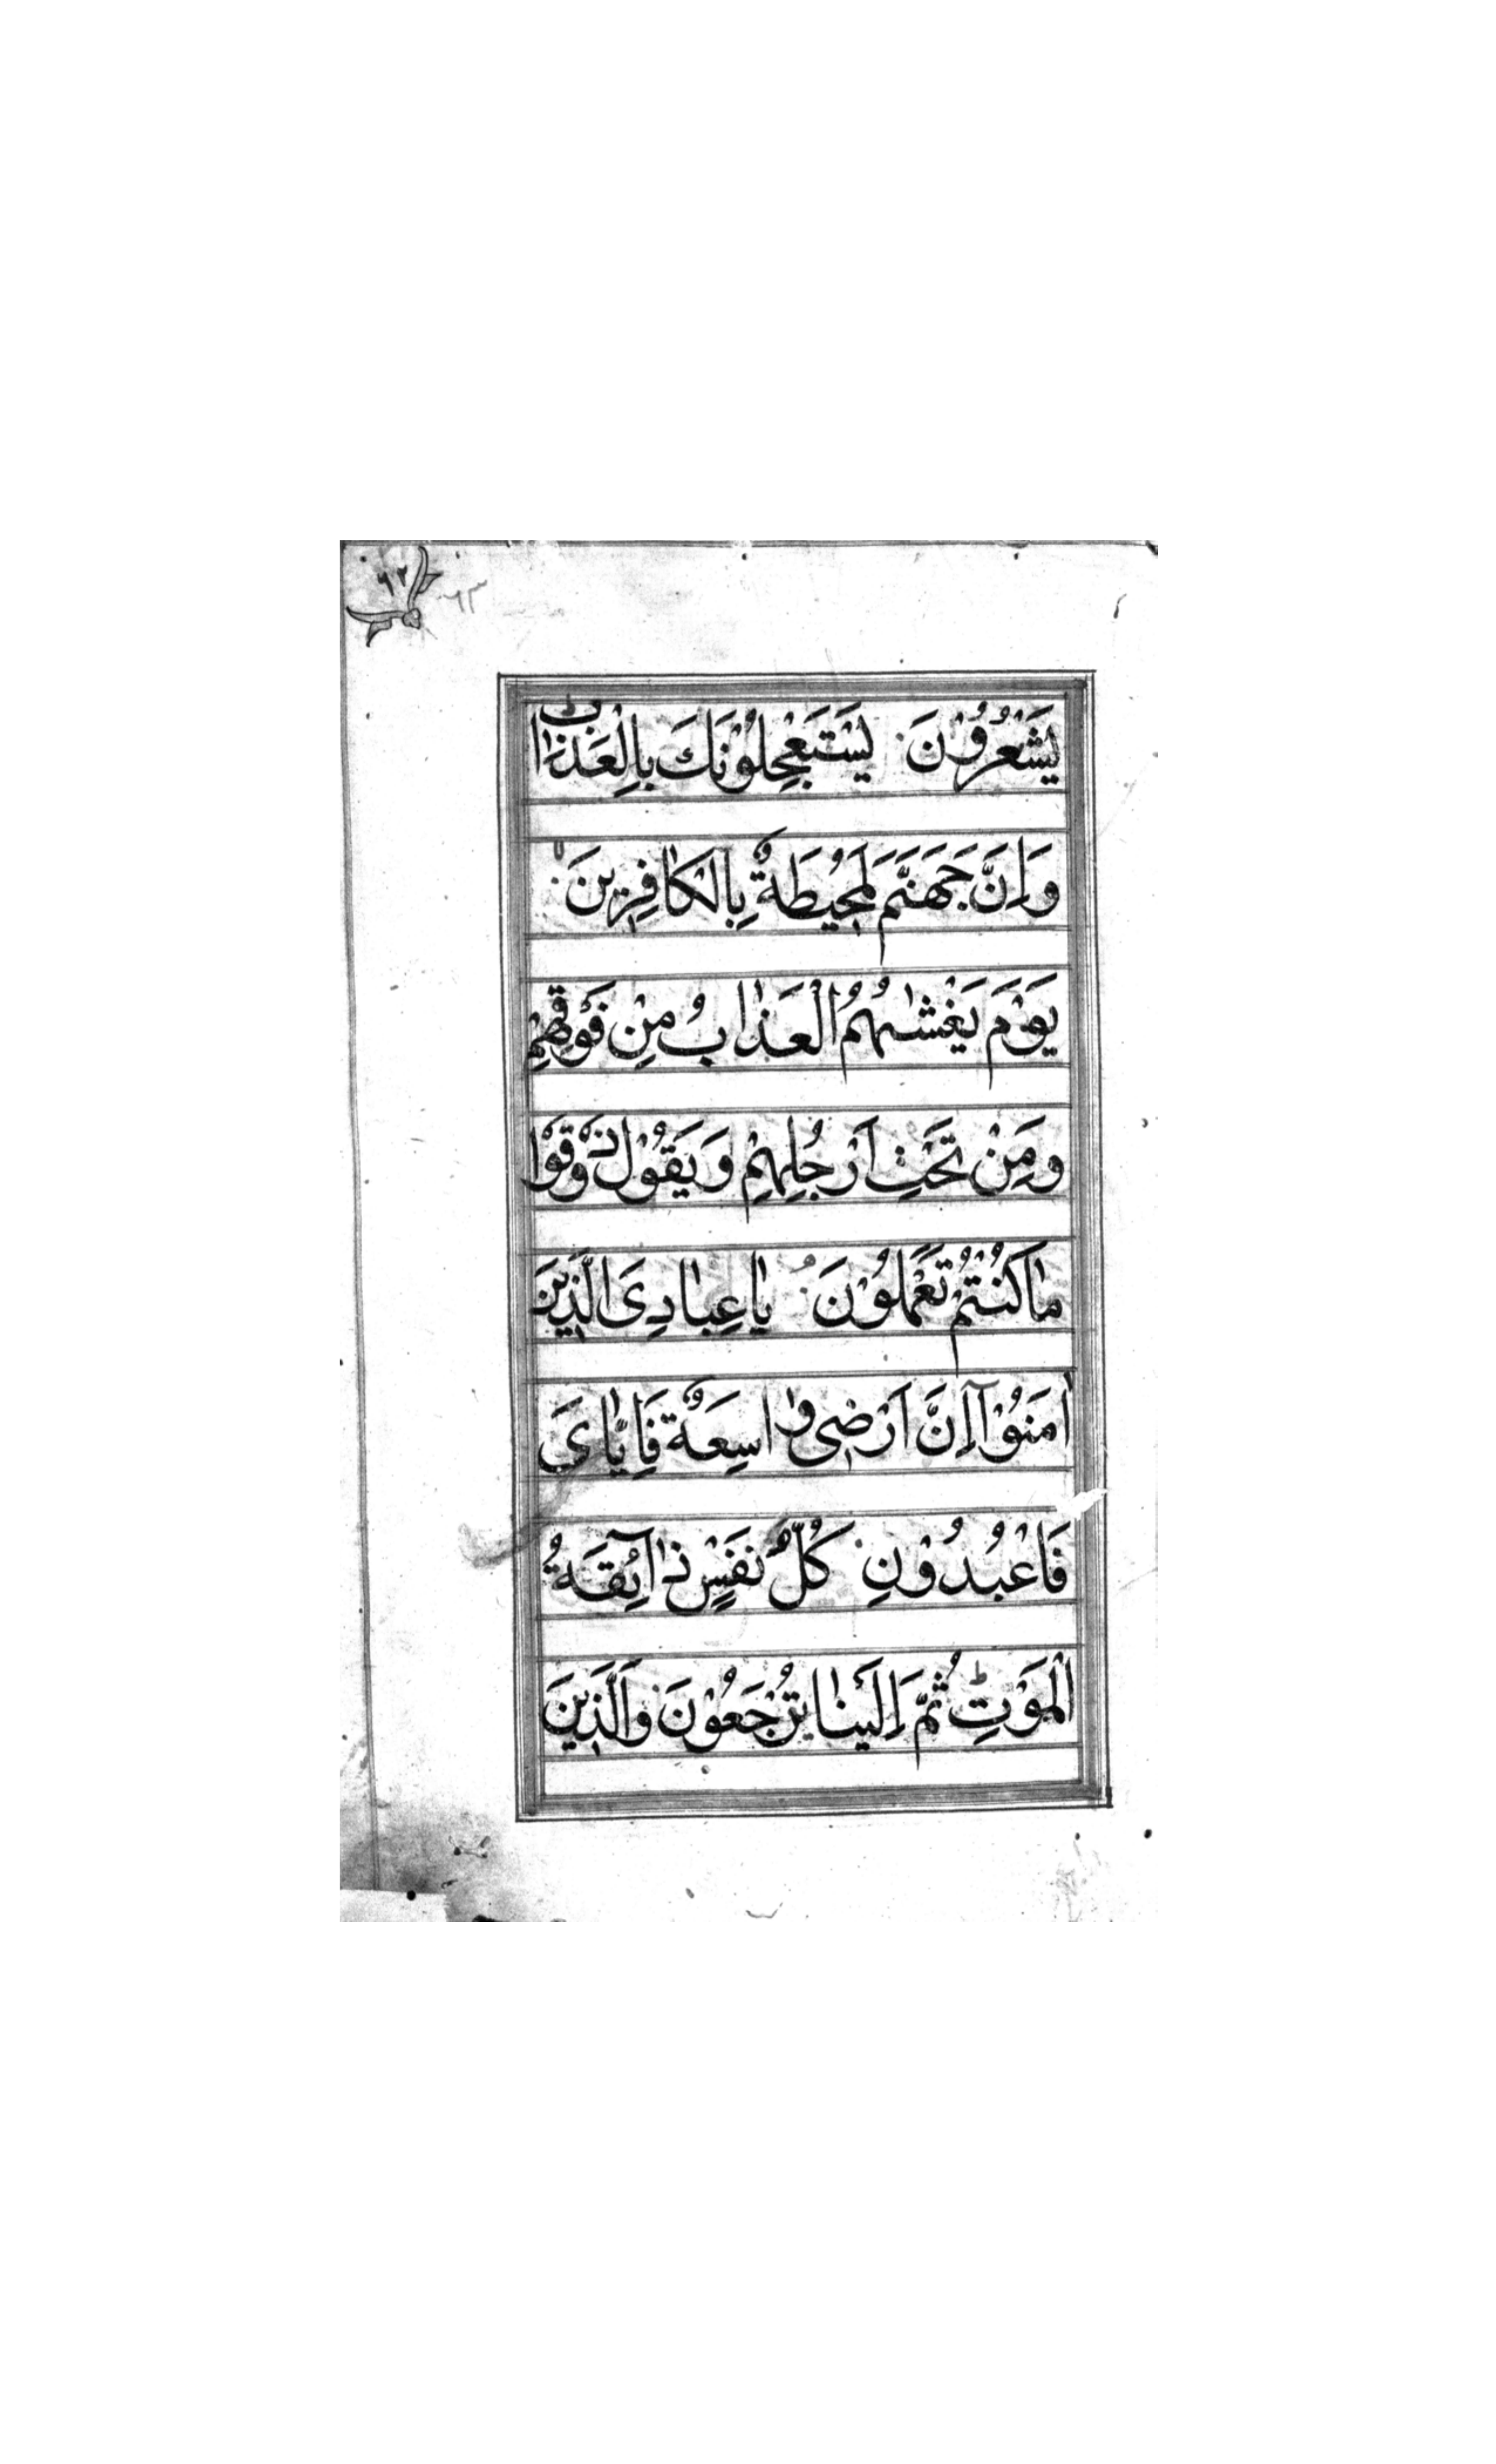 ٦٢ ٦٣
يَشْعُرُوْنَ يَسْتَعْجِلُوْنَكَ بِالْعَذٰابِ
وَاِنَّ جَهَنَّمَ لَمُحِيْطَةٌ بِالْكٰافِرِيْنَ
يَوْمَ يَغْشٰيهُمُ الْعَذٰابُ مِنْ فَوْقِهِمْ
وَمِنْ تَحْتِ اَرْجُلِهِمْ وَيَقُوْلُ ذُوْقُوْا
مٰا كُنْتُمْ تَعْمَلُوْنَ يٰا عِبٰادِىَ الَّذِيْنَ
اٰمَنُوْٓا اِنَّ اَرْضِىْ وٰاسِعَةٌ فَاِيّٰاىَ
فَاعْبُدُوْنِ كُلُّ نَفْسٍ ذٰٓائِقَةُ
الْمَوْتِ ثُمَّ اِلَيْنٰا تُرْجَعُوْنَ وَالَّذِيْنَ